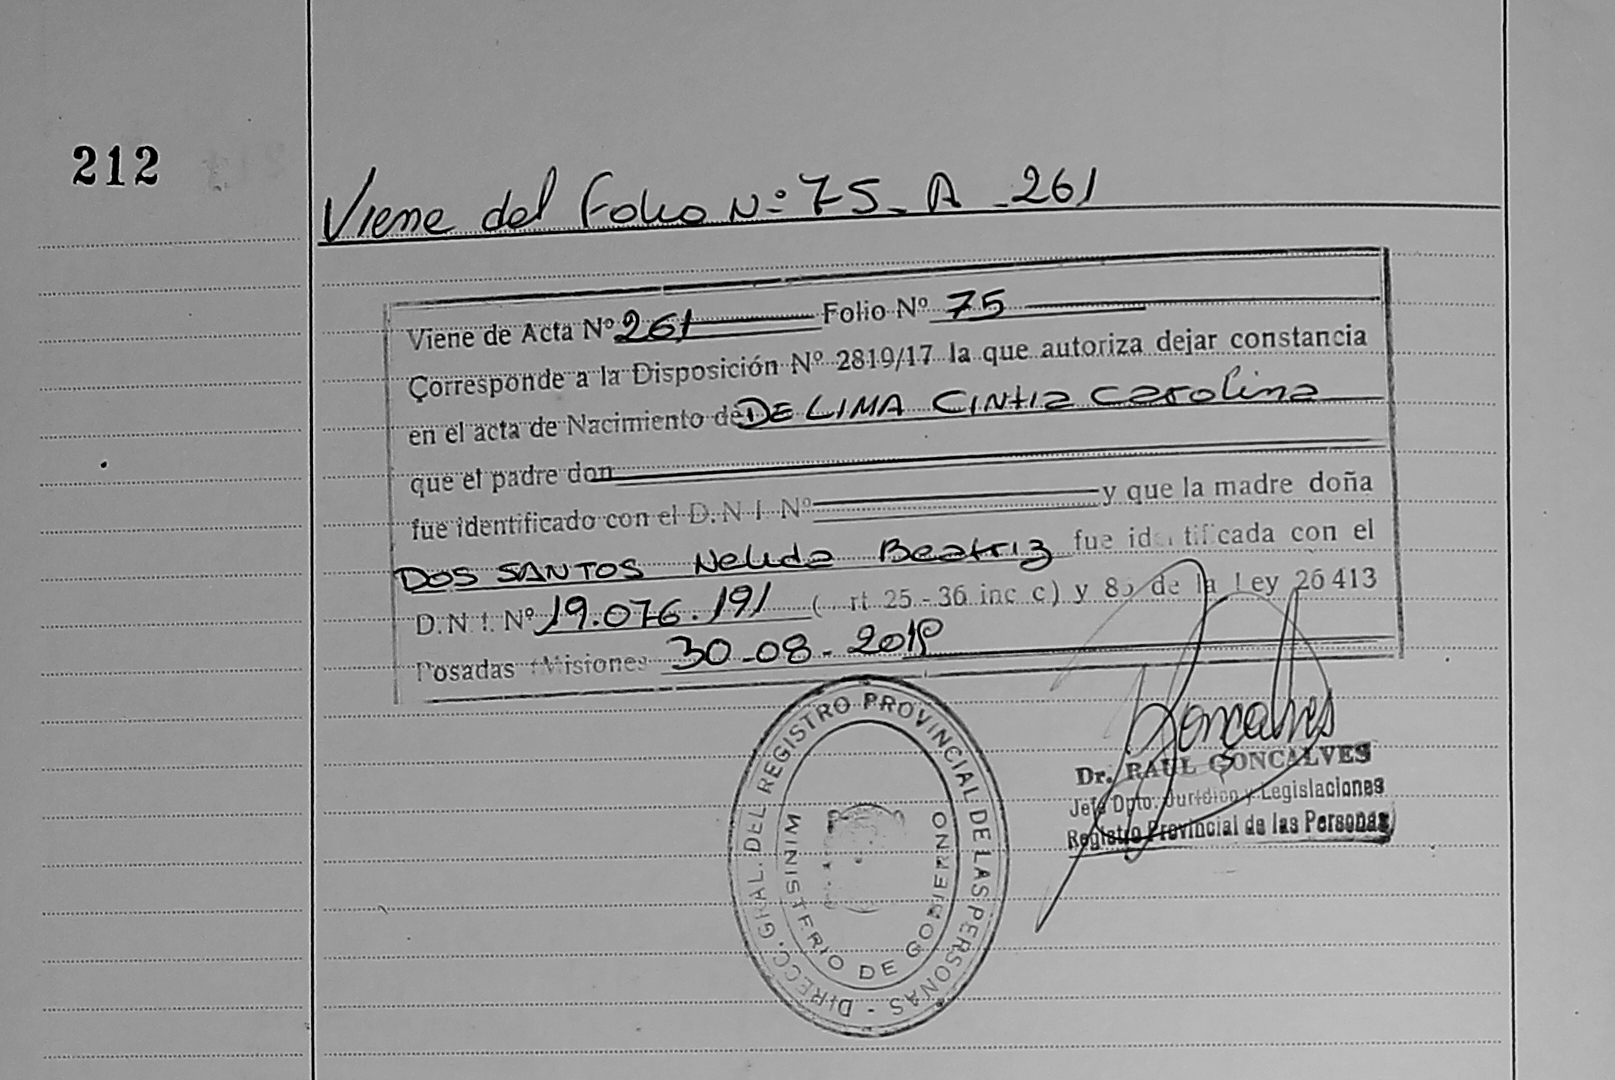 212
Viene del Folio Nº 75 - A - 261
Viene de Acta Nº 261 Folio Nº 75
Corresponde a la Disposición Nº 2819/17 la que autoriza dejar constancia
en el acta de Nacimiento de DE LIMA CINTIA Carolina
que el padre don
fue identificado con el D.N.I. Nº y que la madre doña
DOS SANTOS Nelida Beatriz fue identificada con el
D.N.I. Nº 19.076.191 ( rt 25 - 36 inc c) y 85 de la Ley 26413
Posadas Misiones 30-08-2018
Goncalves
Dr. RAUL GONCALVES
Jefe Dpto. Jurídico y Legislaciones
Registro Provincial de las Personas
DIRECC. GRAL. DEL REGISTRO PROVINCIAL DE LAS PERSONAS -
MINISTERIO DE GOBIERNO